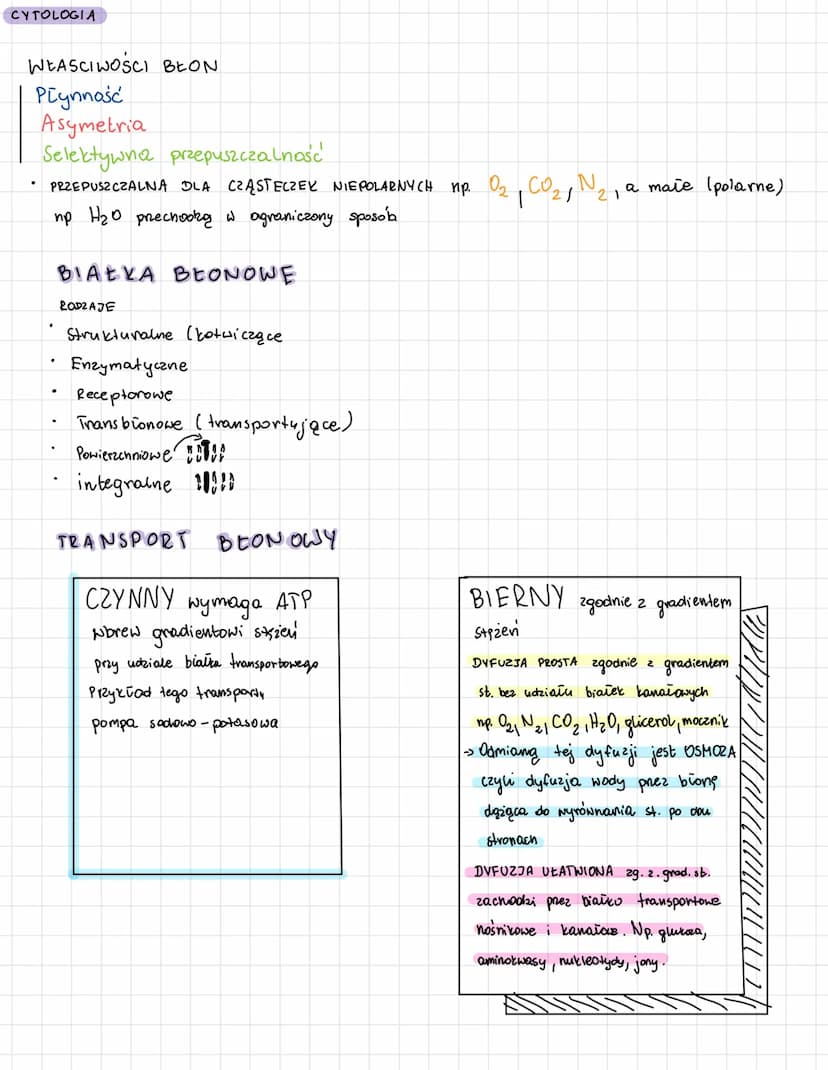 CYTOLOGIA
WŁAŚCIWOŚCI BŁON
Płynność
Asymetria
Selektywna przepuszczalność
• PRZEPUSZCZALNA DLA CZĄSTECZEK NIEPOLARNYCH np. O₂, CO₂, N₂, a małe (polarne)
np H₂O przechodzą w ograniczony sposób
BIAŁKA BŁONOWE
RODZAJE
• Strukturalne (kotwiczące
• Enzymatyczne
• Receptorowe
• Transbłonowe (transportujące)
• Powierzchniowe
• integralne
TRANSPORT BŁONOWY
CZYNNY wymaga ATP
wbrew gradientowi stężeń
przy udziale białka transportowego
Przykład tego transportu
pompa sodowo-potasowa
BIERNY zgodnie z gradientem
stężeń
DYFUZJA PROSTA zgodnie z gradientem
st. bez udziału białek kanałowych
np. O₂, N₂, CO₂, H₂O, glicerol, mocznik
→ Odmianą tej dyfuzji jest OSMOZA
czyli dyfuzja wody przez błonę
dążąca do wyrównania st. po obu
stronach
DYFUZJA UŁATWIONA zg. z. grad. st.
zachodzi przez białko transportowe
nośnikowe i kanałowe. Np. glukoza,
aminokwasy, nukleotydy, jony.